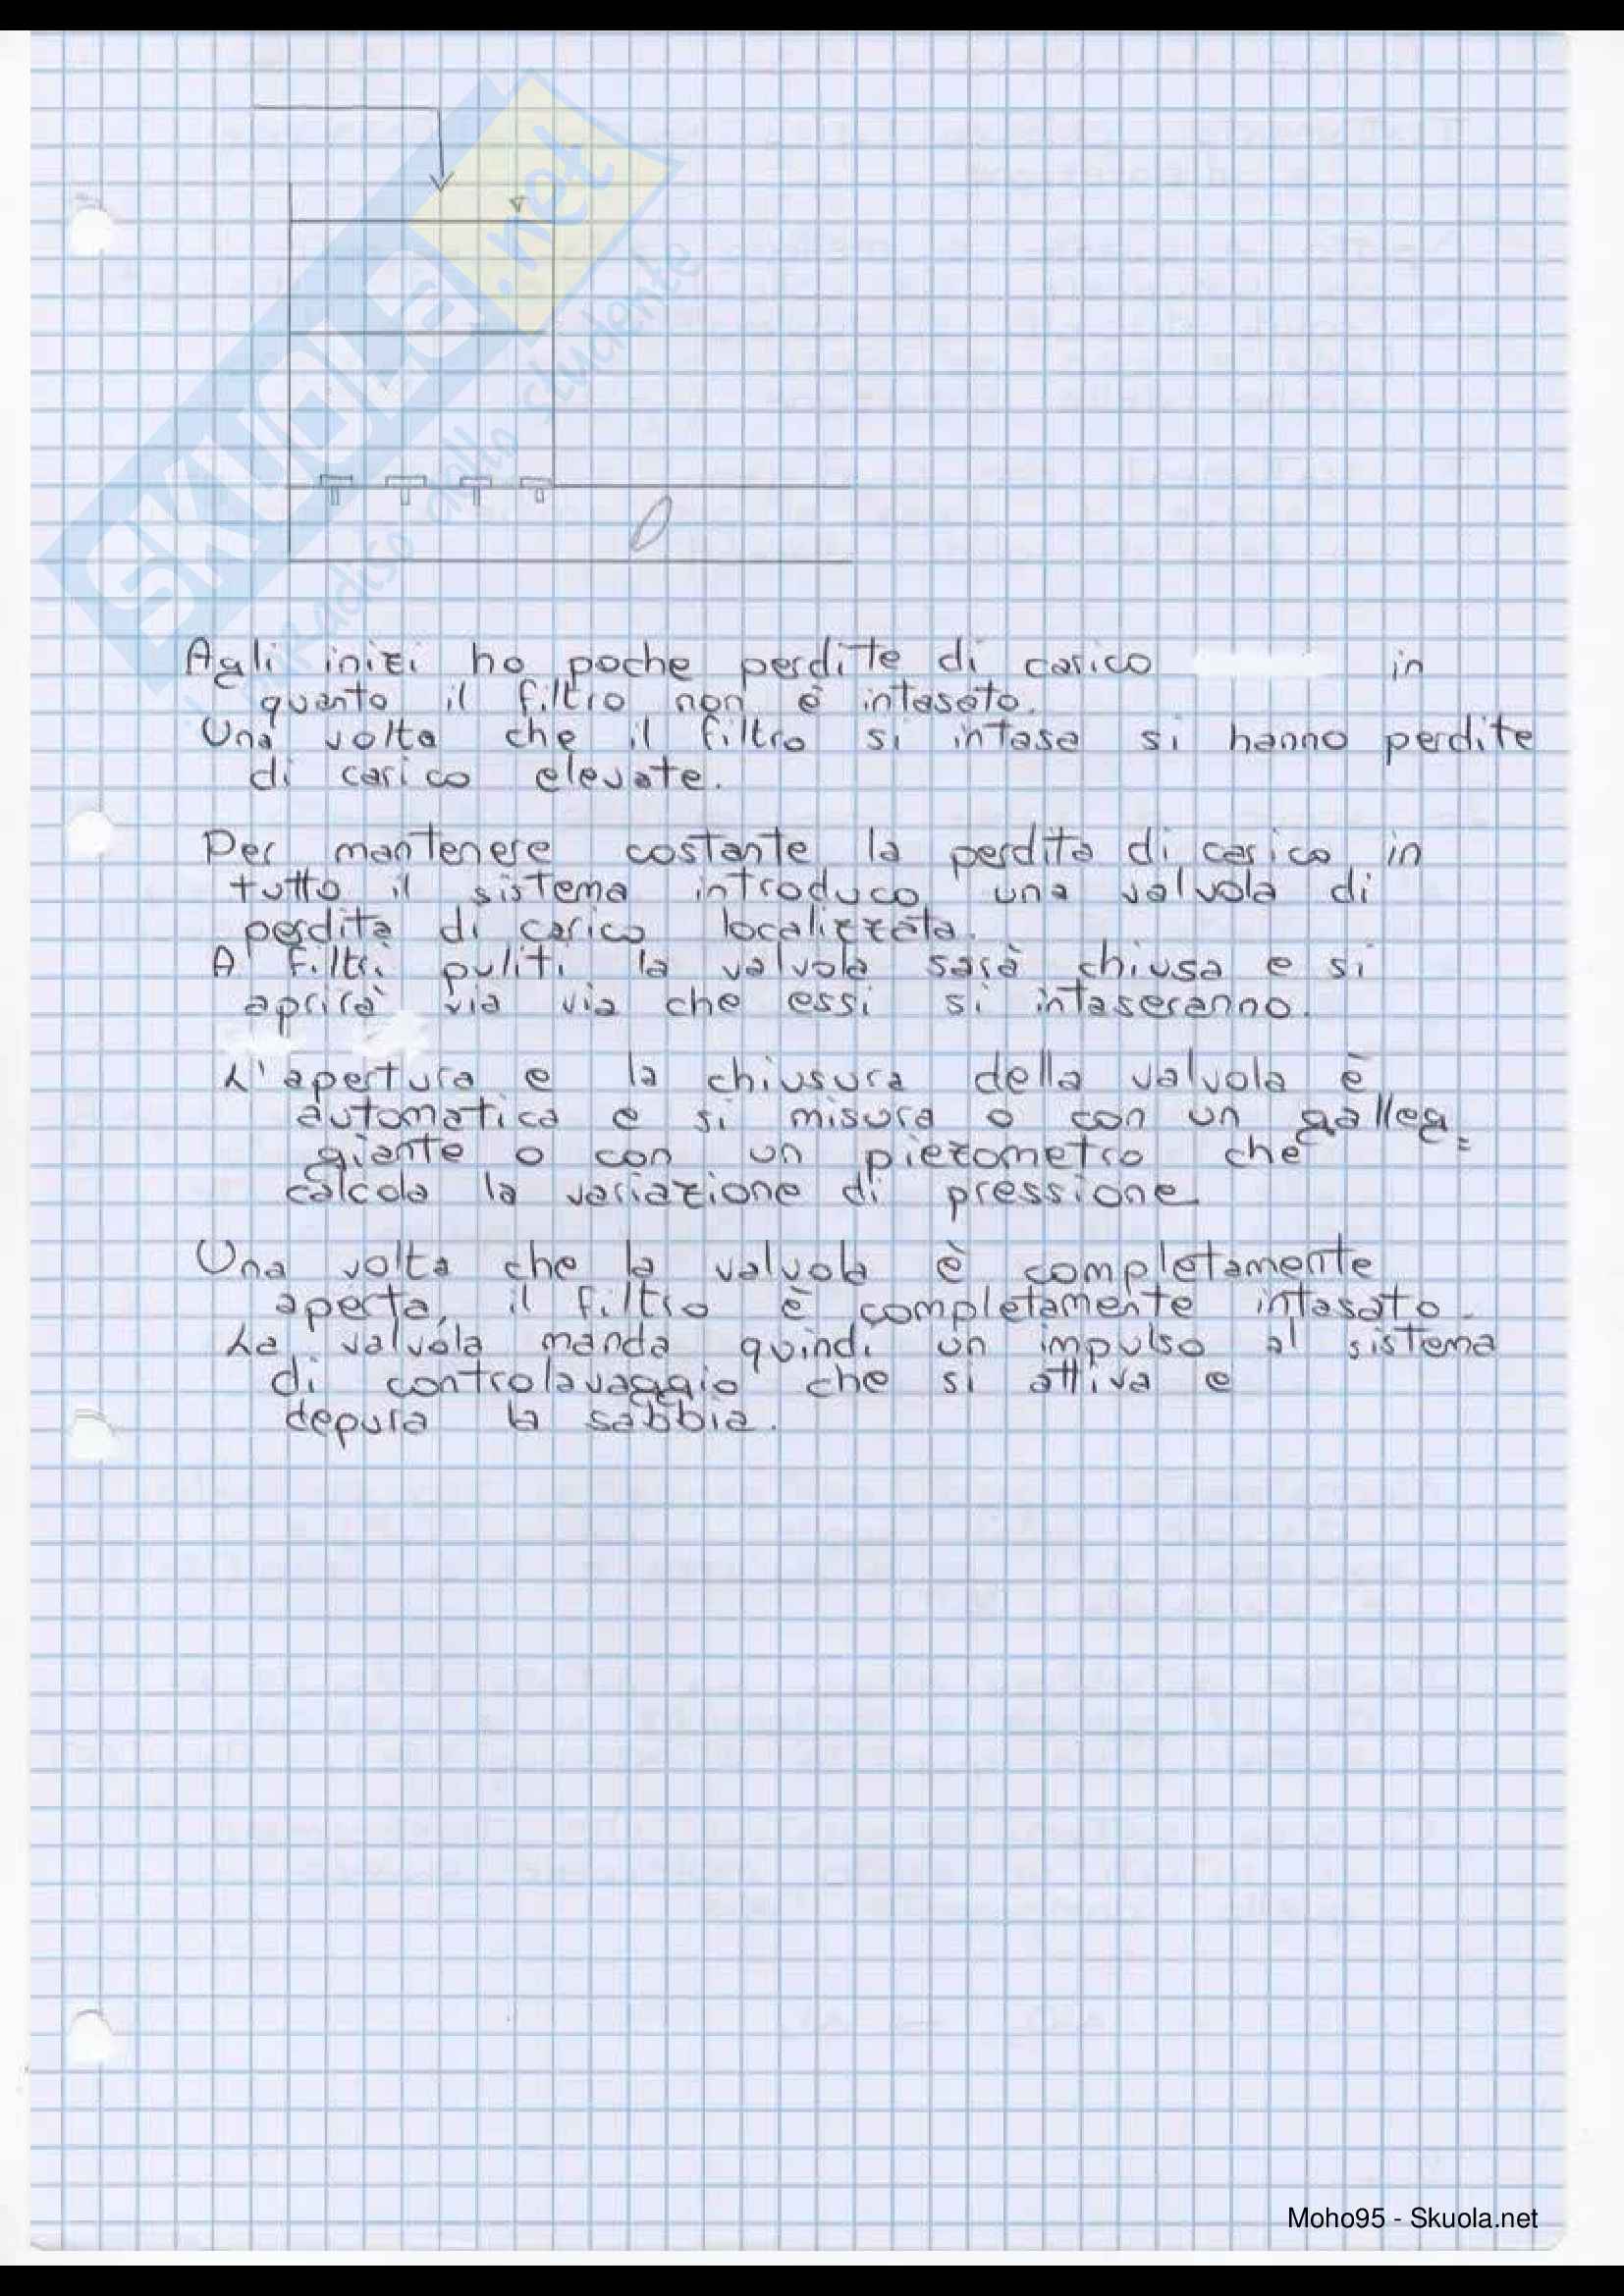 SKUOLA.net
il paradiso dello studente
Agli inizi ho poche perdite di carico in
quanto il filtro non è intasato.
Una volta che il filtro si intasa si hanno perdite
di carico elevate.
Per mantenere costante la perdita di carico in
tutto il sistema introduco una valvola di
perdita di carico localizzata.
A filtri puliti la valvola sarà chiusa e si
aprirà via via che essi si intaseranno.
L'apertura e la chiusura della valvola è
automatica e si misura o con un galleg=
giante o con un piezometro che
calcola la variazione di pressione
Una volta che la valvola è completamente
aperta, il filtro è completamente intasato.
La valvola manda quindi un impulso al sistema
di controlavaggio che si attiva e
depura la sabbia.
Moho95 - Skuola.net